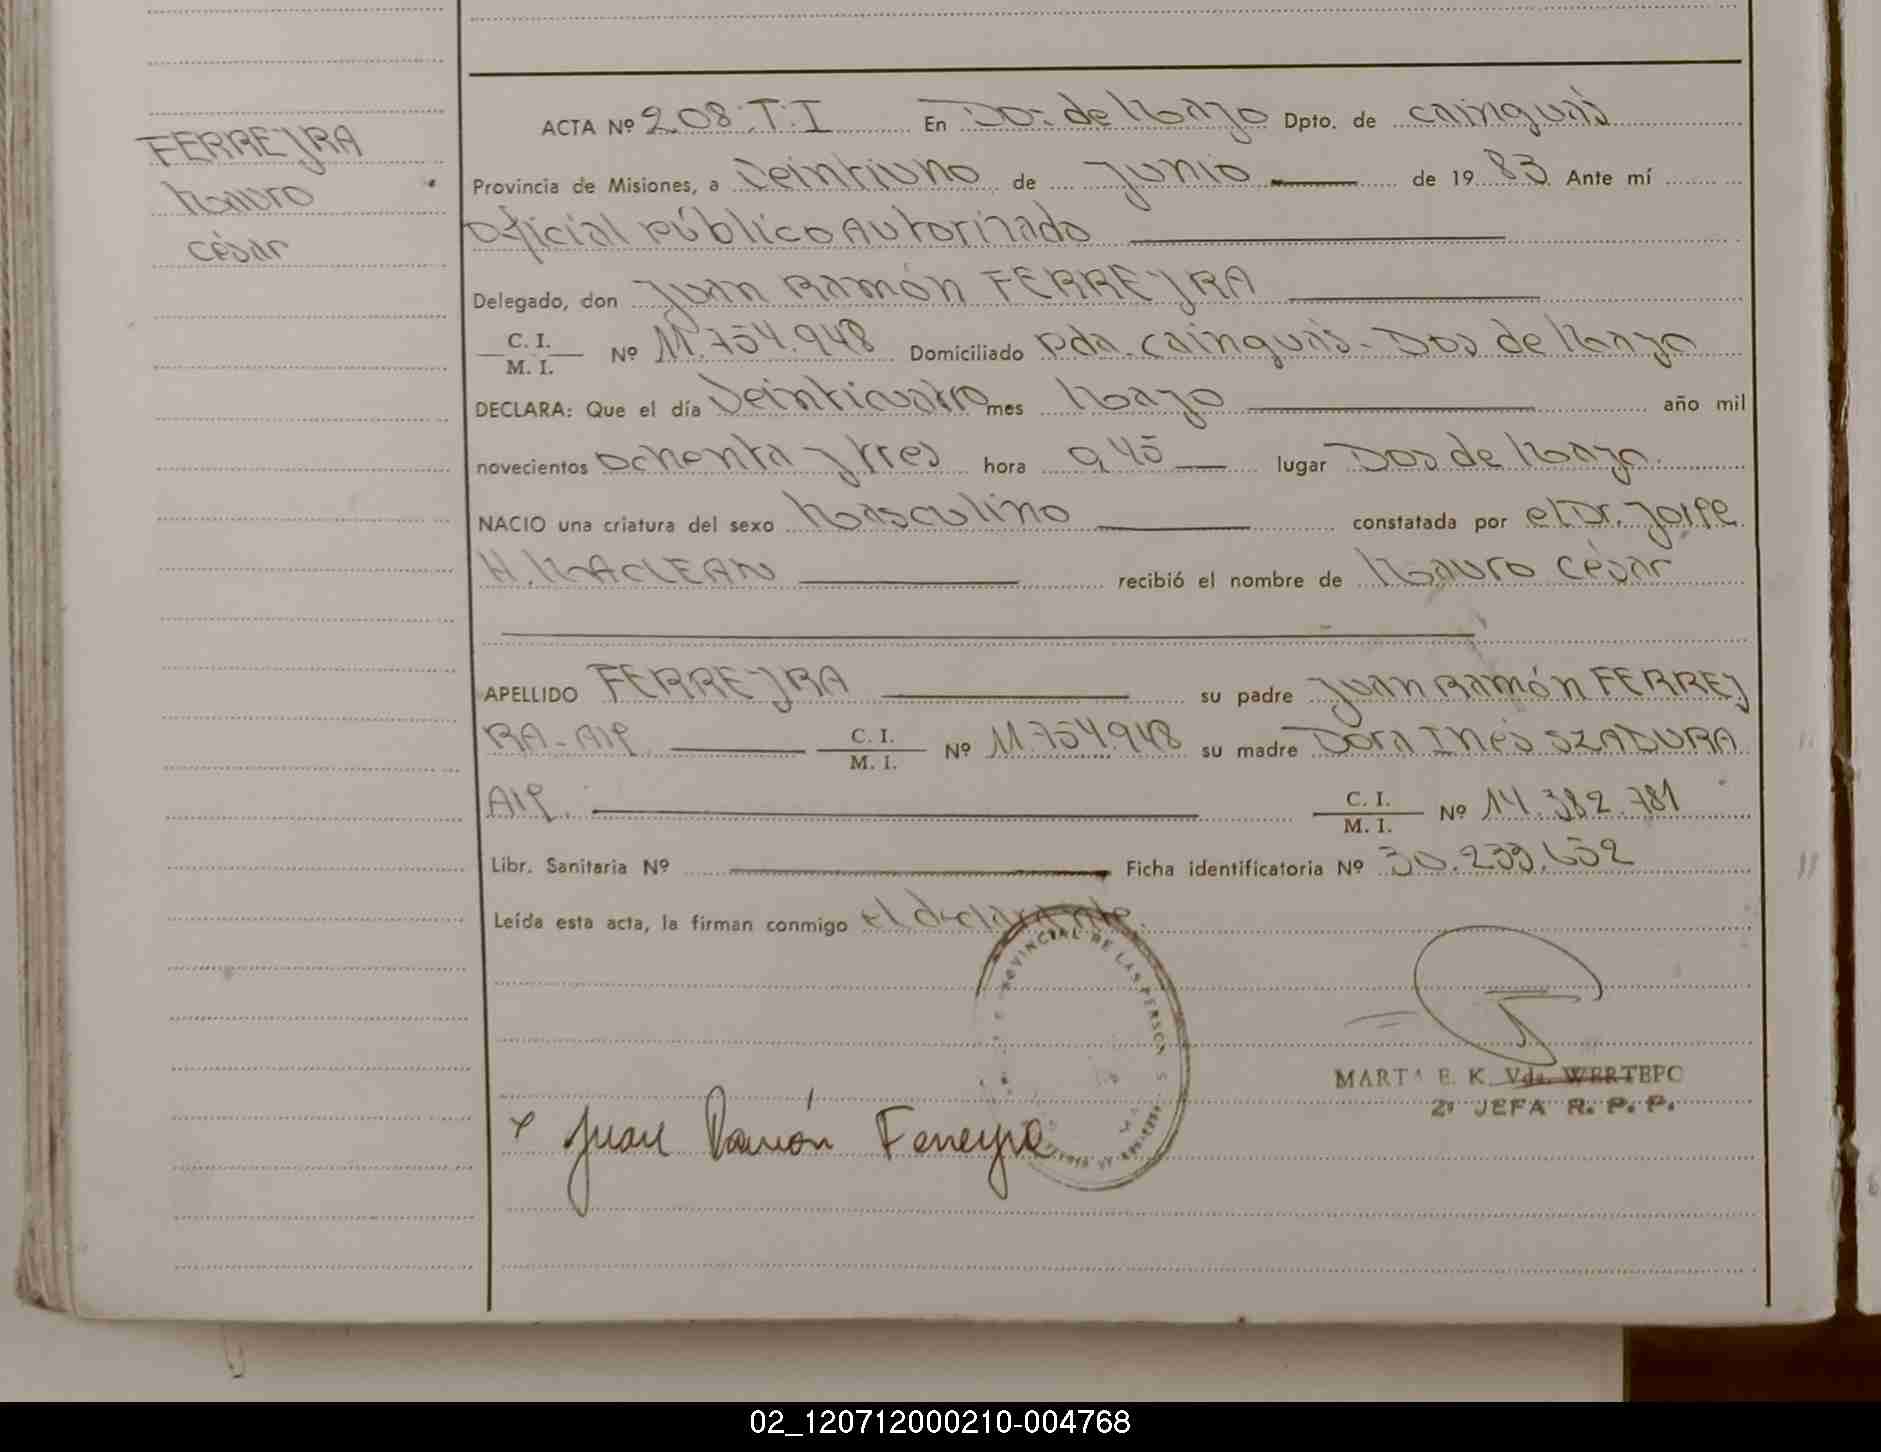 FERREYRA
Mauro
César
ACTA Nº 208.T.I En Dos de Mayo Dpto. de Cainguás
Provincia de Misiones, a Veintiuno de Junio de 1983 Ante mí
Oficial Público Autorizado
Delegado, don Juan Ramón FERREYRA
C. I.
M. I. Nº 11.754.948 Domiciliado Pda. Cainguás - Dos de Mayo
DECLARA: Que el día Veinticuatro mes Mayo año mil
novecientos ochenta y tres hora 9,45 lugar Dos de Mayo.
NACIO una criatura del sexo Masculino constatada por el Dr. Jorge
H. MACLEAN recibió el nombre de Mauro César
APELLIDO FERREYRA su padre Juan Ramón FERREY
RA - Arg. C. I.
M. I. Nº 11.754.948 su madre Dora Inés SZADURA
Arg. C. I.
M. I. Nº 14.382.781
Libr. Sanitaria Nº Ficha identificatoria Nº 30.239.652
Leída esta acta, la firman conmigo el declarante.
PROVINCIAL DE LAS PERSONAS
MARTA E. K. Vda. WERTEPO
2ª JEFA R. P. P.
x Juan Ramón Ferreyra
02_120712000210-004768